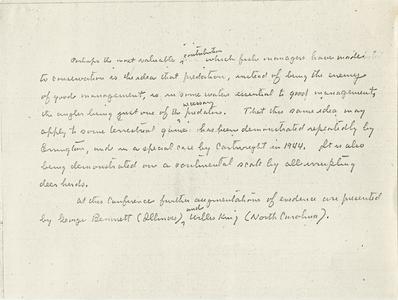 Perhaps the most valuable contribution which fish managers have made
to conservation is the idea that predation, instead of being the enemy
of good management, is in some waters essential to good management,
the angler being just one of the necessary predators. That this same idea may
apply to some terrestrial game has been demonstrated repeatedly by
Errington, and in a special case by Cartwright in 1944. It is also
being demonstrated on a continental scale by all irrupting
deer herds.
At this Conference further augmentations of evidence are presented
by George Bennett (Illinois), and Willis King (North Carolina).